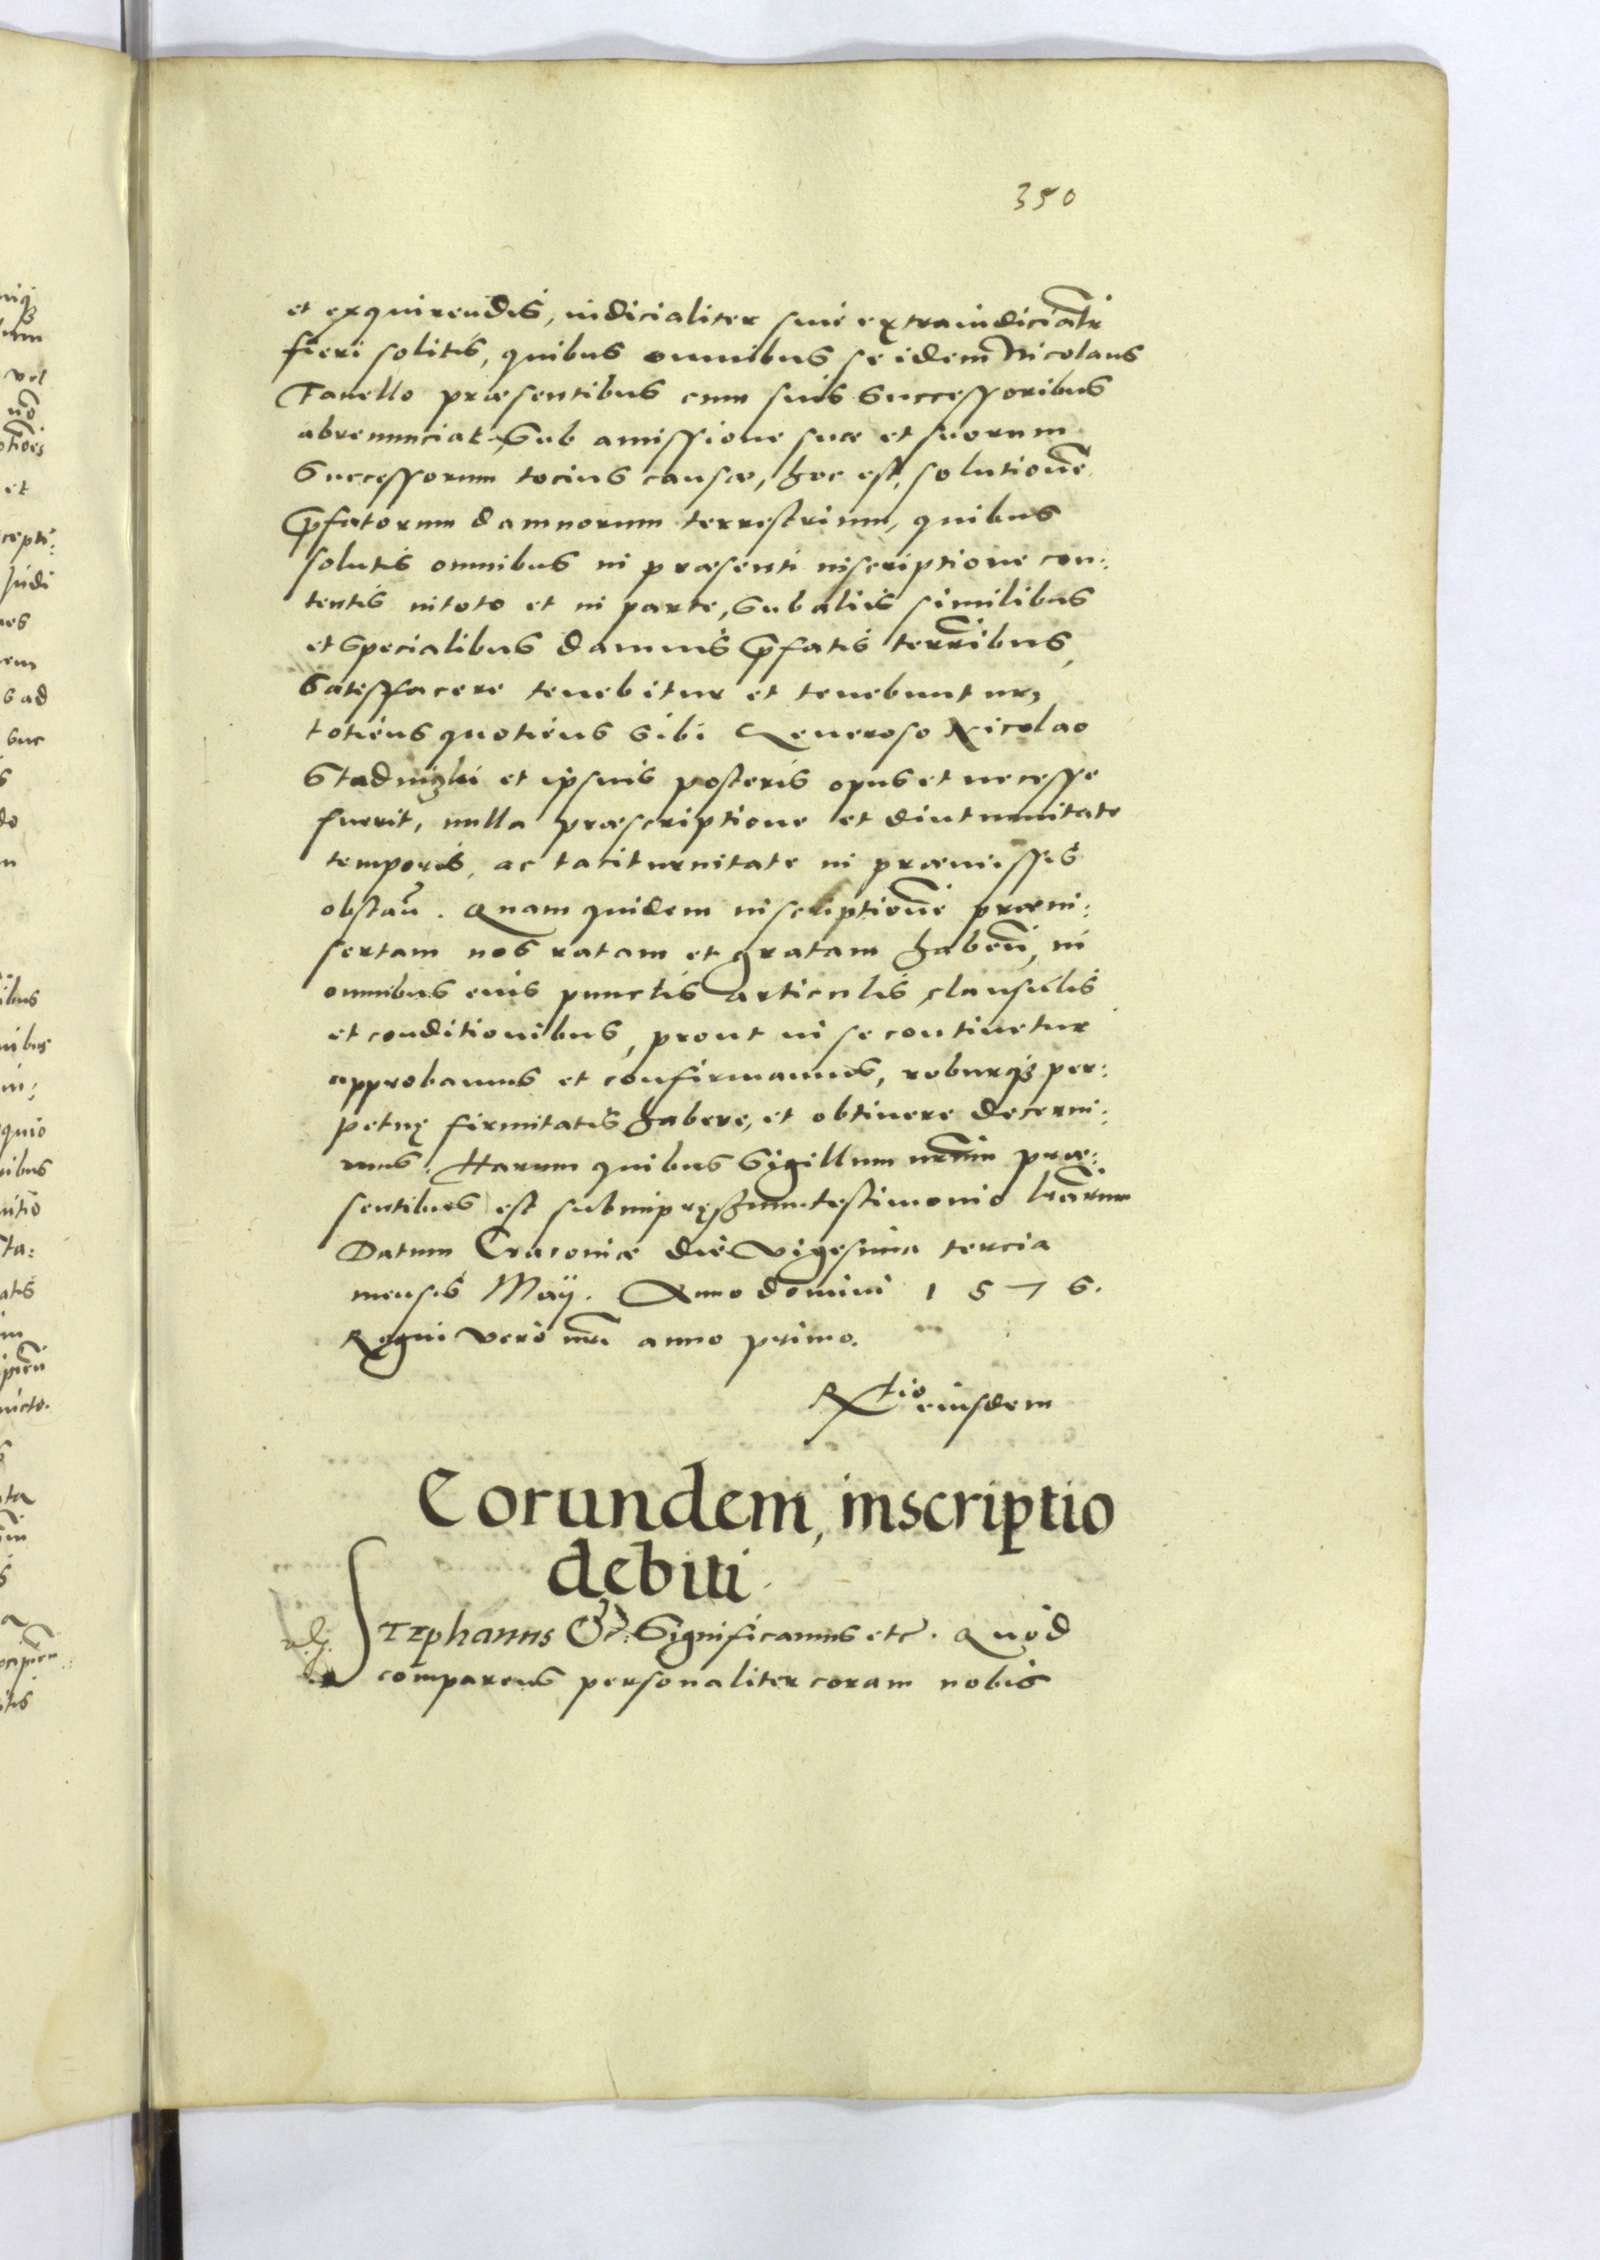 350
et exquirendis, iudicialiter siue extraiudicialr
fieri solitis, quibus omnibus se idem Nicolaus
Tauello præsentibus cum suis Successoribus
abrenunciat, Sub amissione suæ et suorum
Successorum tocius causæ, hoc est, solutione
Pfatorum damnorum terrestrium, quibus
solutis omnibus in præsenti inscriptione con:
tentis in toto et in parte, Sub aliis similibus
et Specialibus damnis Pfatis terribus
Satisfacere tenebitur et tenebuntur,
totiens quotiens Sibi Generoso Nicolao
Stadnizki et ipsius posteris opus et necesse
fuerit, nulla præscriptione et diuturnitate
temporis, ac taciturnitate in præmissis
obstan. Quam quidem inscriptione præin:
sertam nos ratam et gratam haben, in
omnibus eius punctis articulis, clausulis
et conditionibus, prout in se continetur
approbamus et confirmamus, roburq3 per:
petuę firmitatis habere, et obtinere decerni:
mus. Harum quibus Sigillum nrm præ:
sentibus est subimpręssum testimonio lrarum
Datum Cracouiæ die Vigesima tercia
mensis Maÿ. Anno domini 1576.
Regni vero nri anno primo.
Rtio eiusdem
Eorundem, inscriptio
debiti.
STEphanus &c: Significamus etc. Quod
comparens personaliter coram nobis